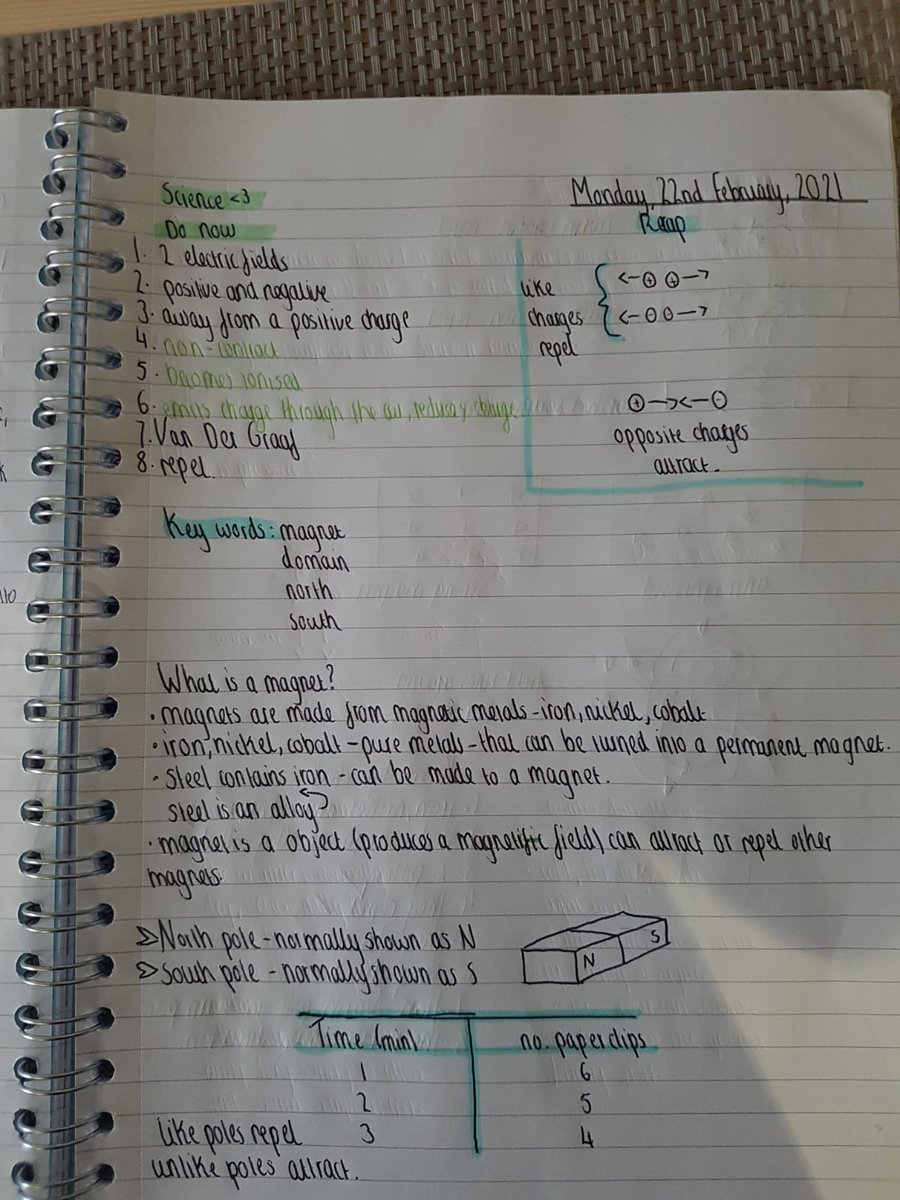 Science <3
Monday, 22nd February, 2021
Do now
1. 2 electric fields
2. positive and negative
3. away from a positive charge
4. non-contact
5. becomes ionised
6. emits charge through the air, reducing
7. Van Der Graaf
8. repel.
Recap
like
charges
repel
opposite charges
attract.
Key words: magnet
domain
north
south
What is a magnet?
• magnets are made from magnetic metals - iron, nickel, cobalt
• iron, nickel, cobalt - pure metals - that can be turned into a permanent magnet.
• Steel contains iron - can be made to a magnet.
steel is an alloy
• magnet is a object (produces a magnetific field) can attract or repel other
magnets.
North pole - normally shown as N
South pole - normally shown as S
N S
Time (min) no. paperclips
1 6
2 5
3 4
like poles repel
unlike poles attract.